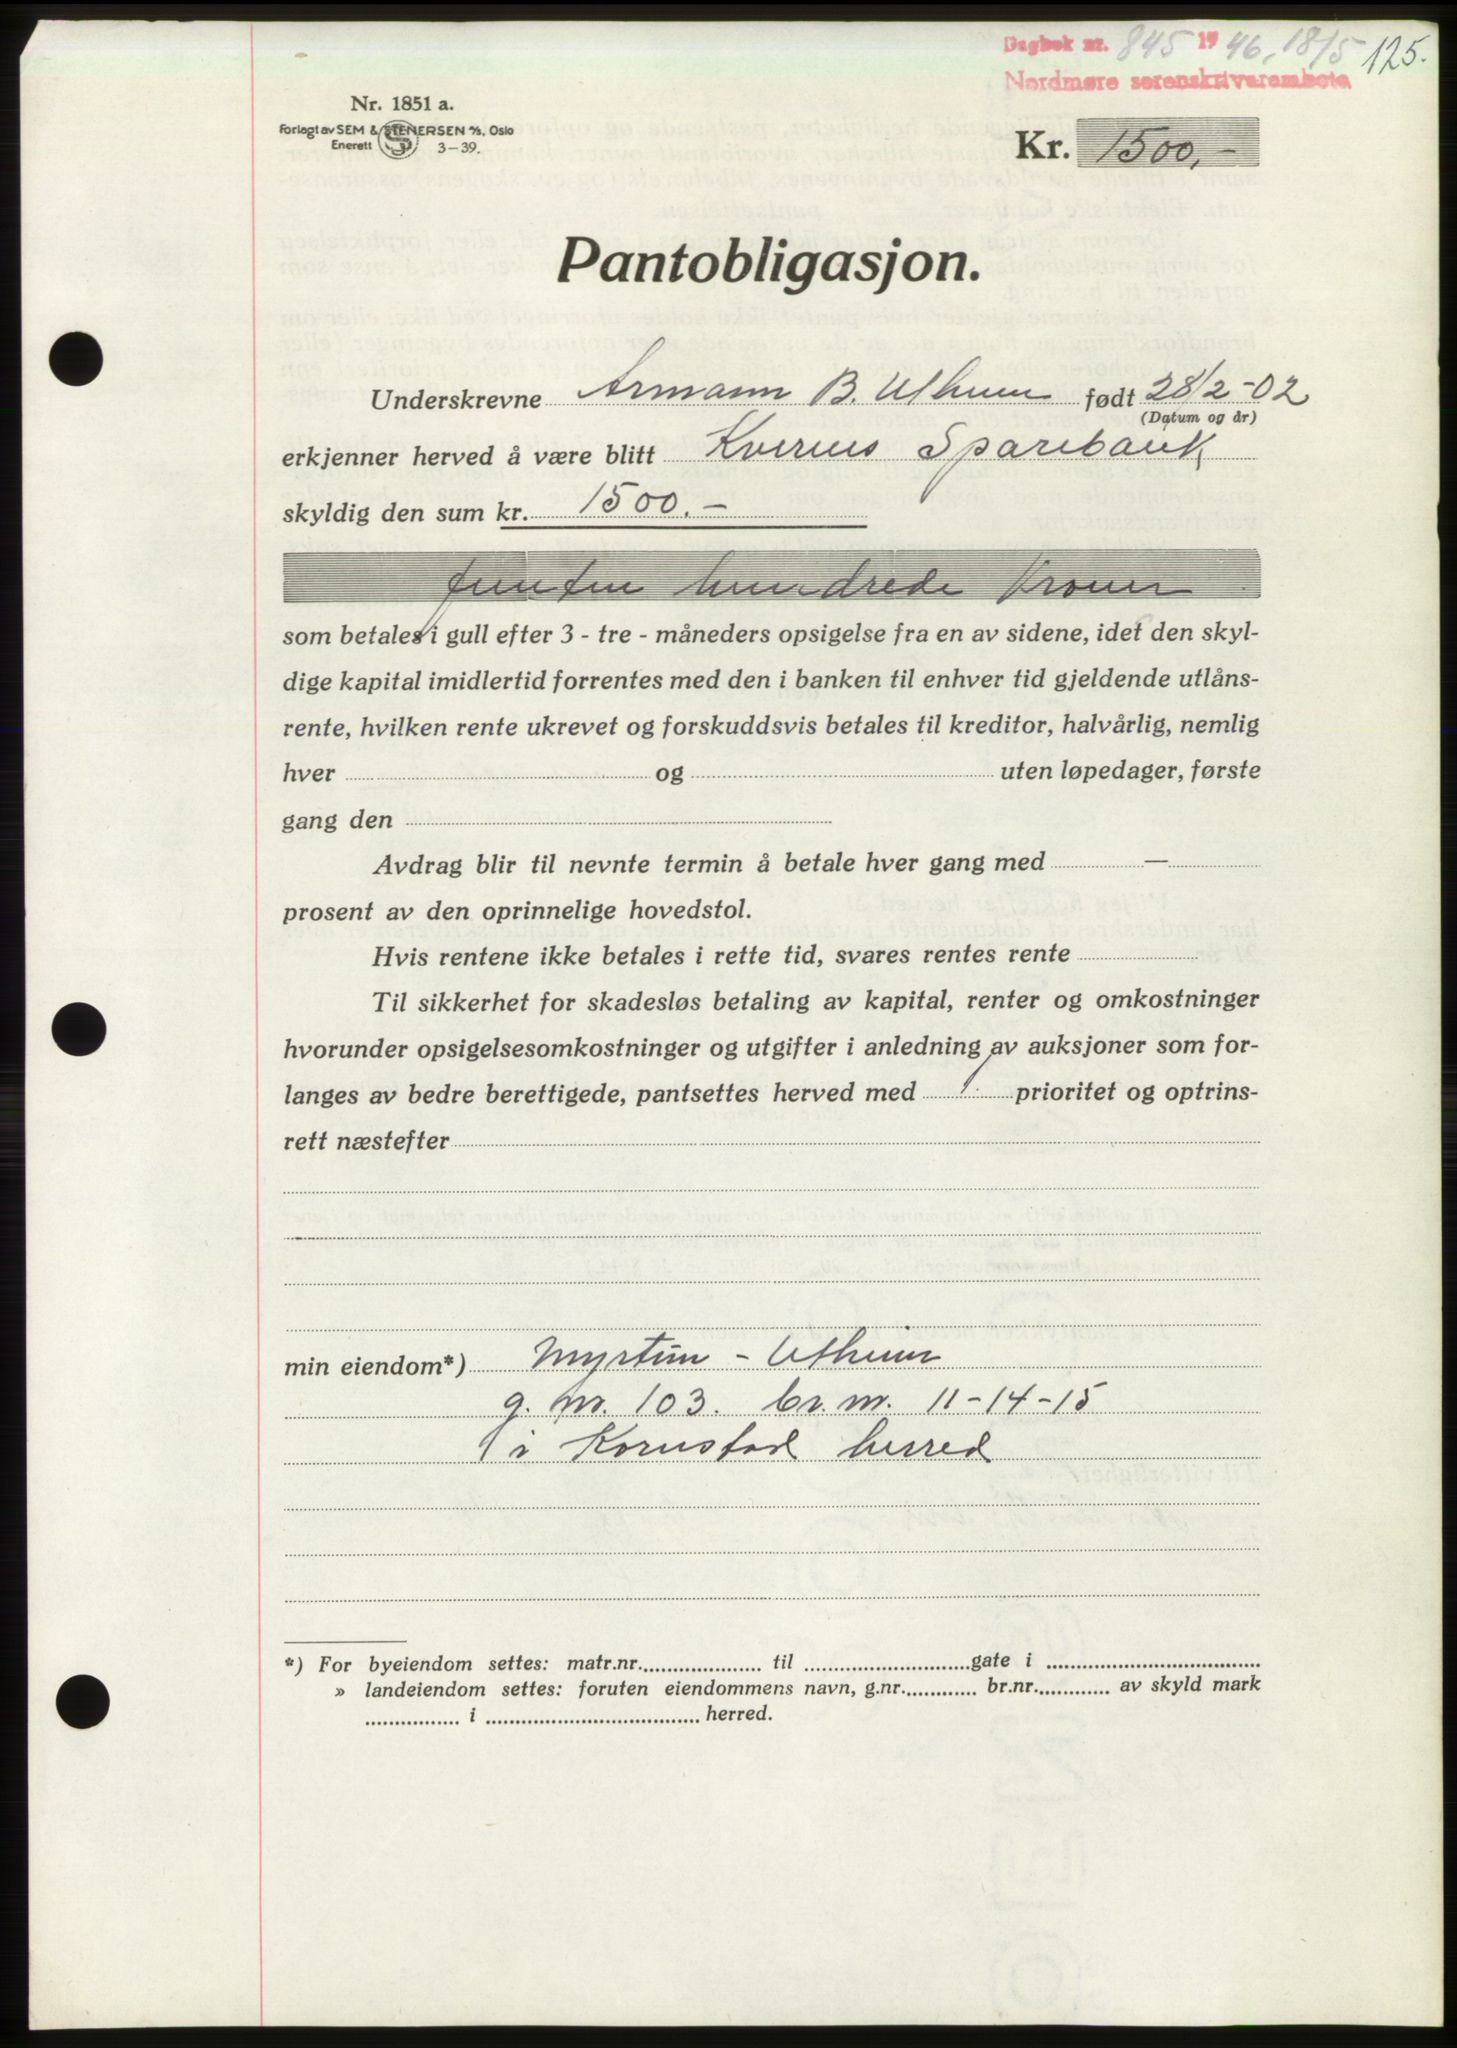 Dagbok nr. 845 1946, 18/5 125.
Nordmøre sorenskrivarembete
Nr. 1851 a.
Forlagt av SEM & STENERSEN A/S, Oslo
Enerett 3-39.
Kr. 1500,-
Pantobligasjon.
Underskrevne Armann B. Utheim født 28/2-02
(Datum og år)
erkjenner herved å være blitt Kvernes Sparebank
skyldig den sum kr. 1500.-
femten hundrede Kroner
som betales i gull efter 3 - tre - måneders opsigelse fra en av sidene, idet den skyl-
dige kapital imidlertid forrentes med den i banken til enhver tid gjeldende utlåns-
rente, hvilken rente ukrevet og forskuddsvis betales til kreditor, halvårlig, nemlig
hver og uten løpedager, første
gang den
Avdrag blir til nevnte termin å betale hver gang med —
prosent av den oprinnelige hovedstol.
Hvis rentene ikke betales i rette tid, svares rentes rente
Til sikkerhet for skadesløs betaling av kapital, renter og omkostninger
hvorunder opsigelsesomkostninger og utgifter i anledning av auksjoner som for-
langes av bedre berettigede, pantsettes herved med 1. prioritet og optrins-
rett næstefter
min eiendom*) Myrtun - Utheim
g. nr. 103. br. nr. 11-14-15
i Kornstad herred
*) For byeiendom settes: matr.nr. til gate i
» landeiendom settes: foruten eiendommens navn, g.nr. br.nr. av skyld mark
i herred.